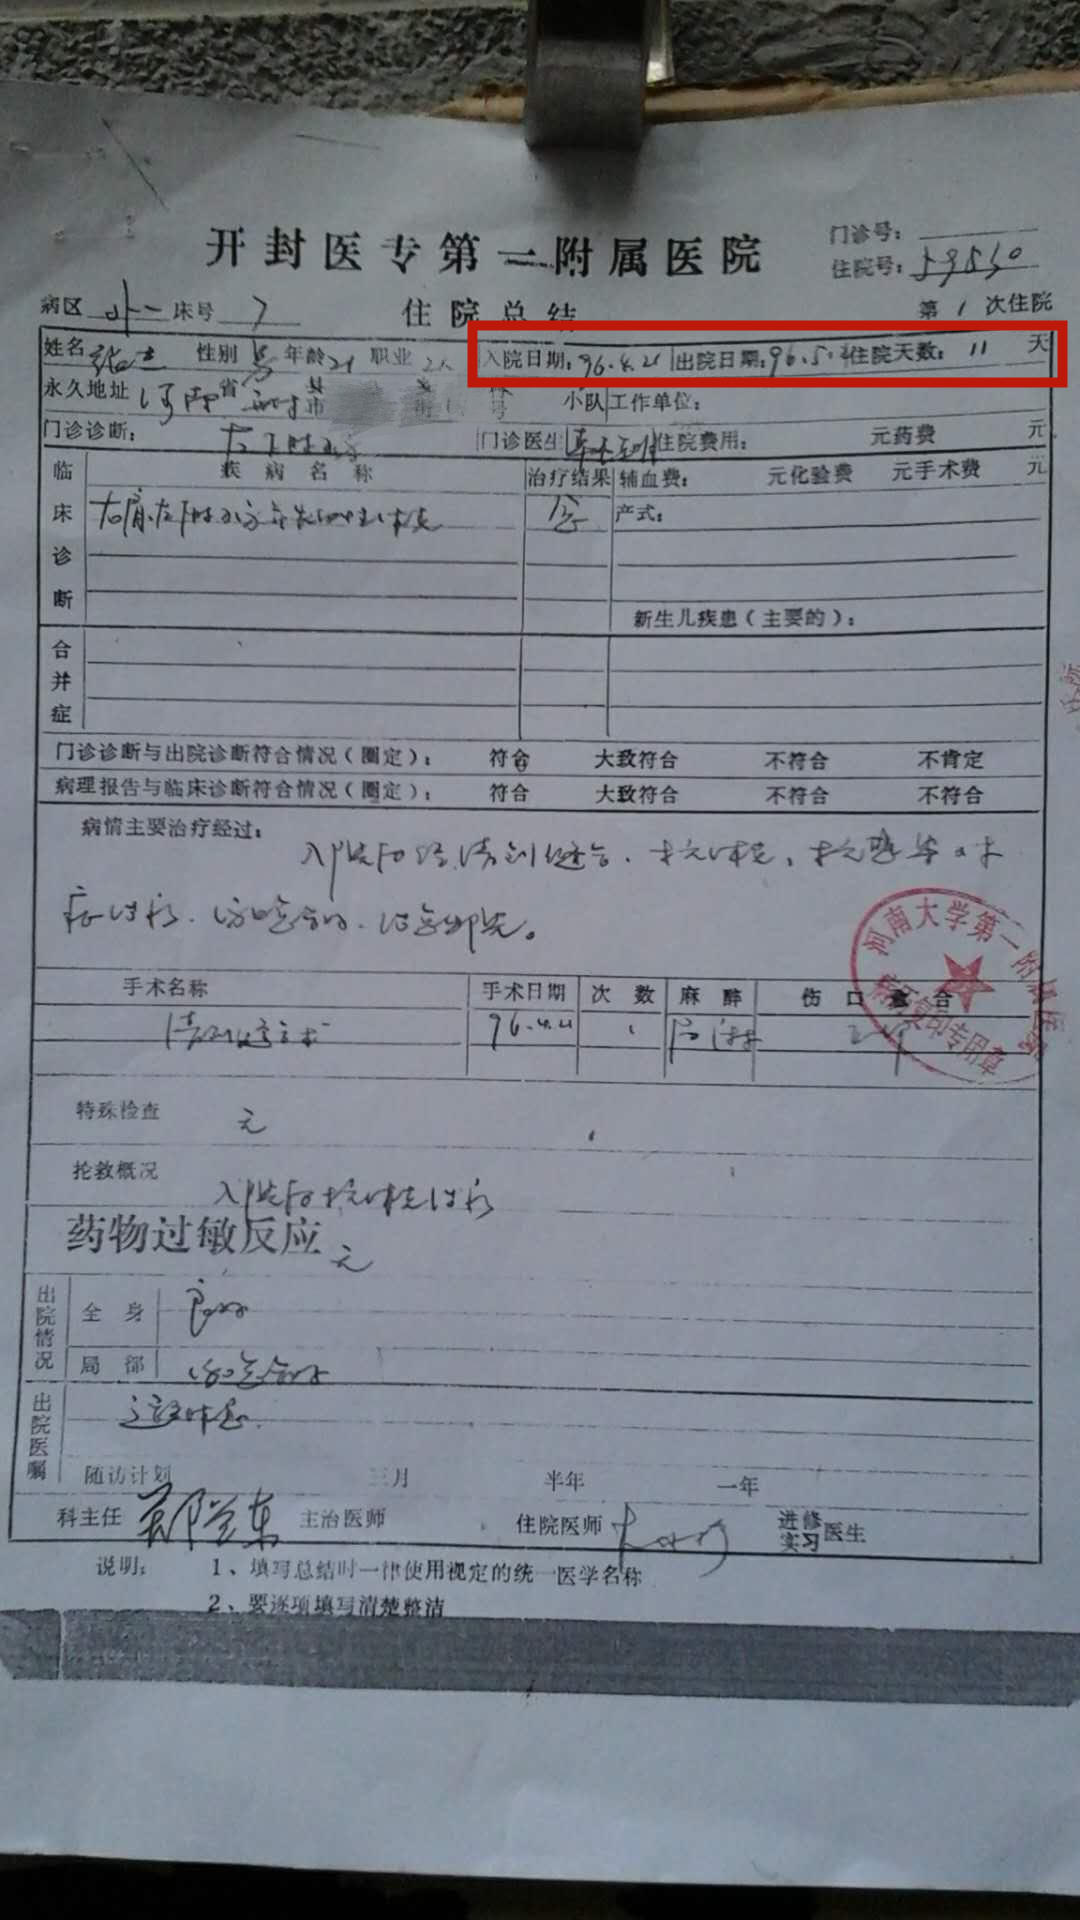 开封医专第一附属医院
门诊号：
住院号：59530
病区 外一 床号 7
住院总结
第 1 次住院
姓名 性别 男 年龄 21 职业 工人 入院日期：96.4.21 出院日期：96.5.2 住院天数：11 天
永久地址 河南 省 开封 县 市 乡 街 号 小队 工作单位：
门诊诊断： 门诊医生 住院费用： 元 药费 元
临床诊断 疾病名称 治疗结果 输血费： 元 化验费 元 手术费 元
愈 产式：
新生儿疾患（主要的）：
合并症
门诊诊断与出院诊断符合情况（圈定）： 符合 大致符合 不符合 不肯定
病理报告与临床诊断符合情况（圈定）： 符合 大致符合 不符合 不符合
病情主要治疗经过：
入院后经清创缝合、抗休克、抗感染对
症治疗、治愈出院。
河南大学第一附属医院
病历复印专用章
手术名称 手术日期 次数 麻醉 伤口愈合
清创缝合术 96.4.21 1 局麻
特殊检查 无
抢救概况 入院后抗休克治疗
药物过敏反应 无
出院情况 全身 良好
局部
出院医嘱
随访计划 三月 半年 一年
科主任 主治医师 住院医师 进修实习医生
说明：1、填写总结时一律使用规定的统一医学名称
2、要逐项填写清楚整洁